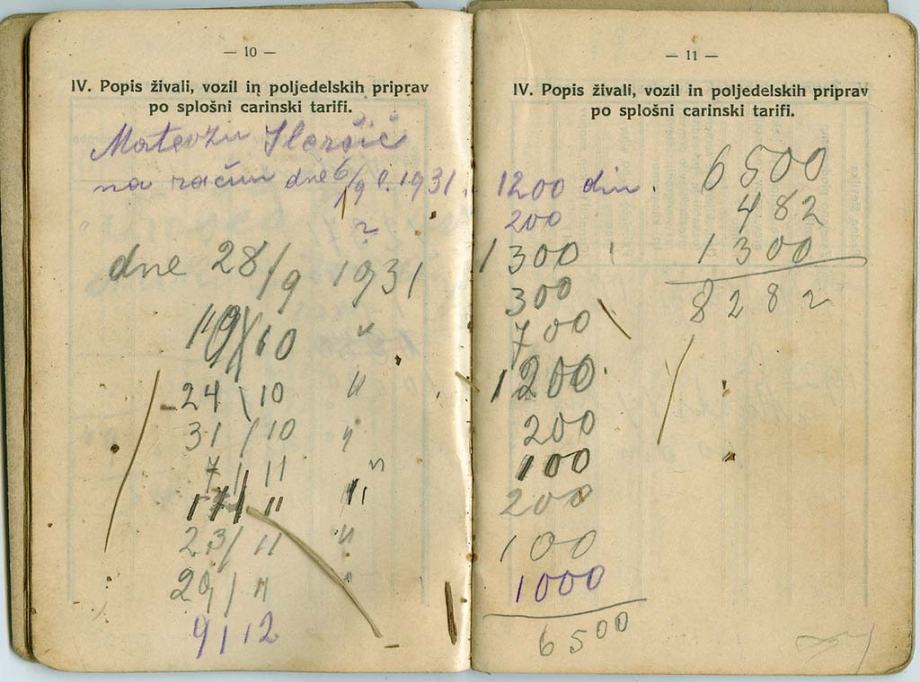 — 10 —
IV. Popis živali, vozil in poljedelskih priprav
po splošni carinski tarifi.
Matevžu
na račun dne 6/9 1931.
?
dne 28/9 1931
19/10 "
24/10 "
31/10 "
7/11 "
17/11 "
23/11 "
29/11 "
9/12
— 11 —
IV. Popis živali, vozil in poljedelskih priprav
po splošni carinski tarifi.
1200 din.
200
1300
300
700
1200
200
100
200
100
1000
6500
6500
482
1300
8282